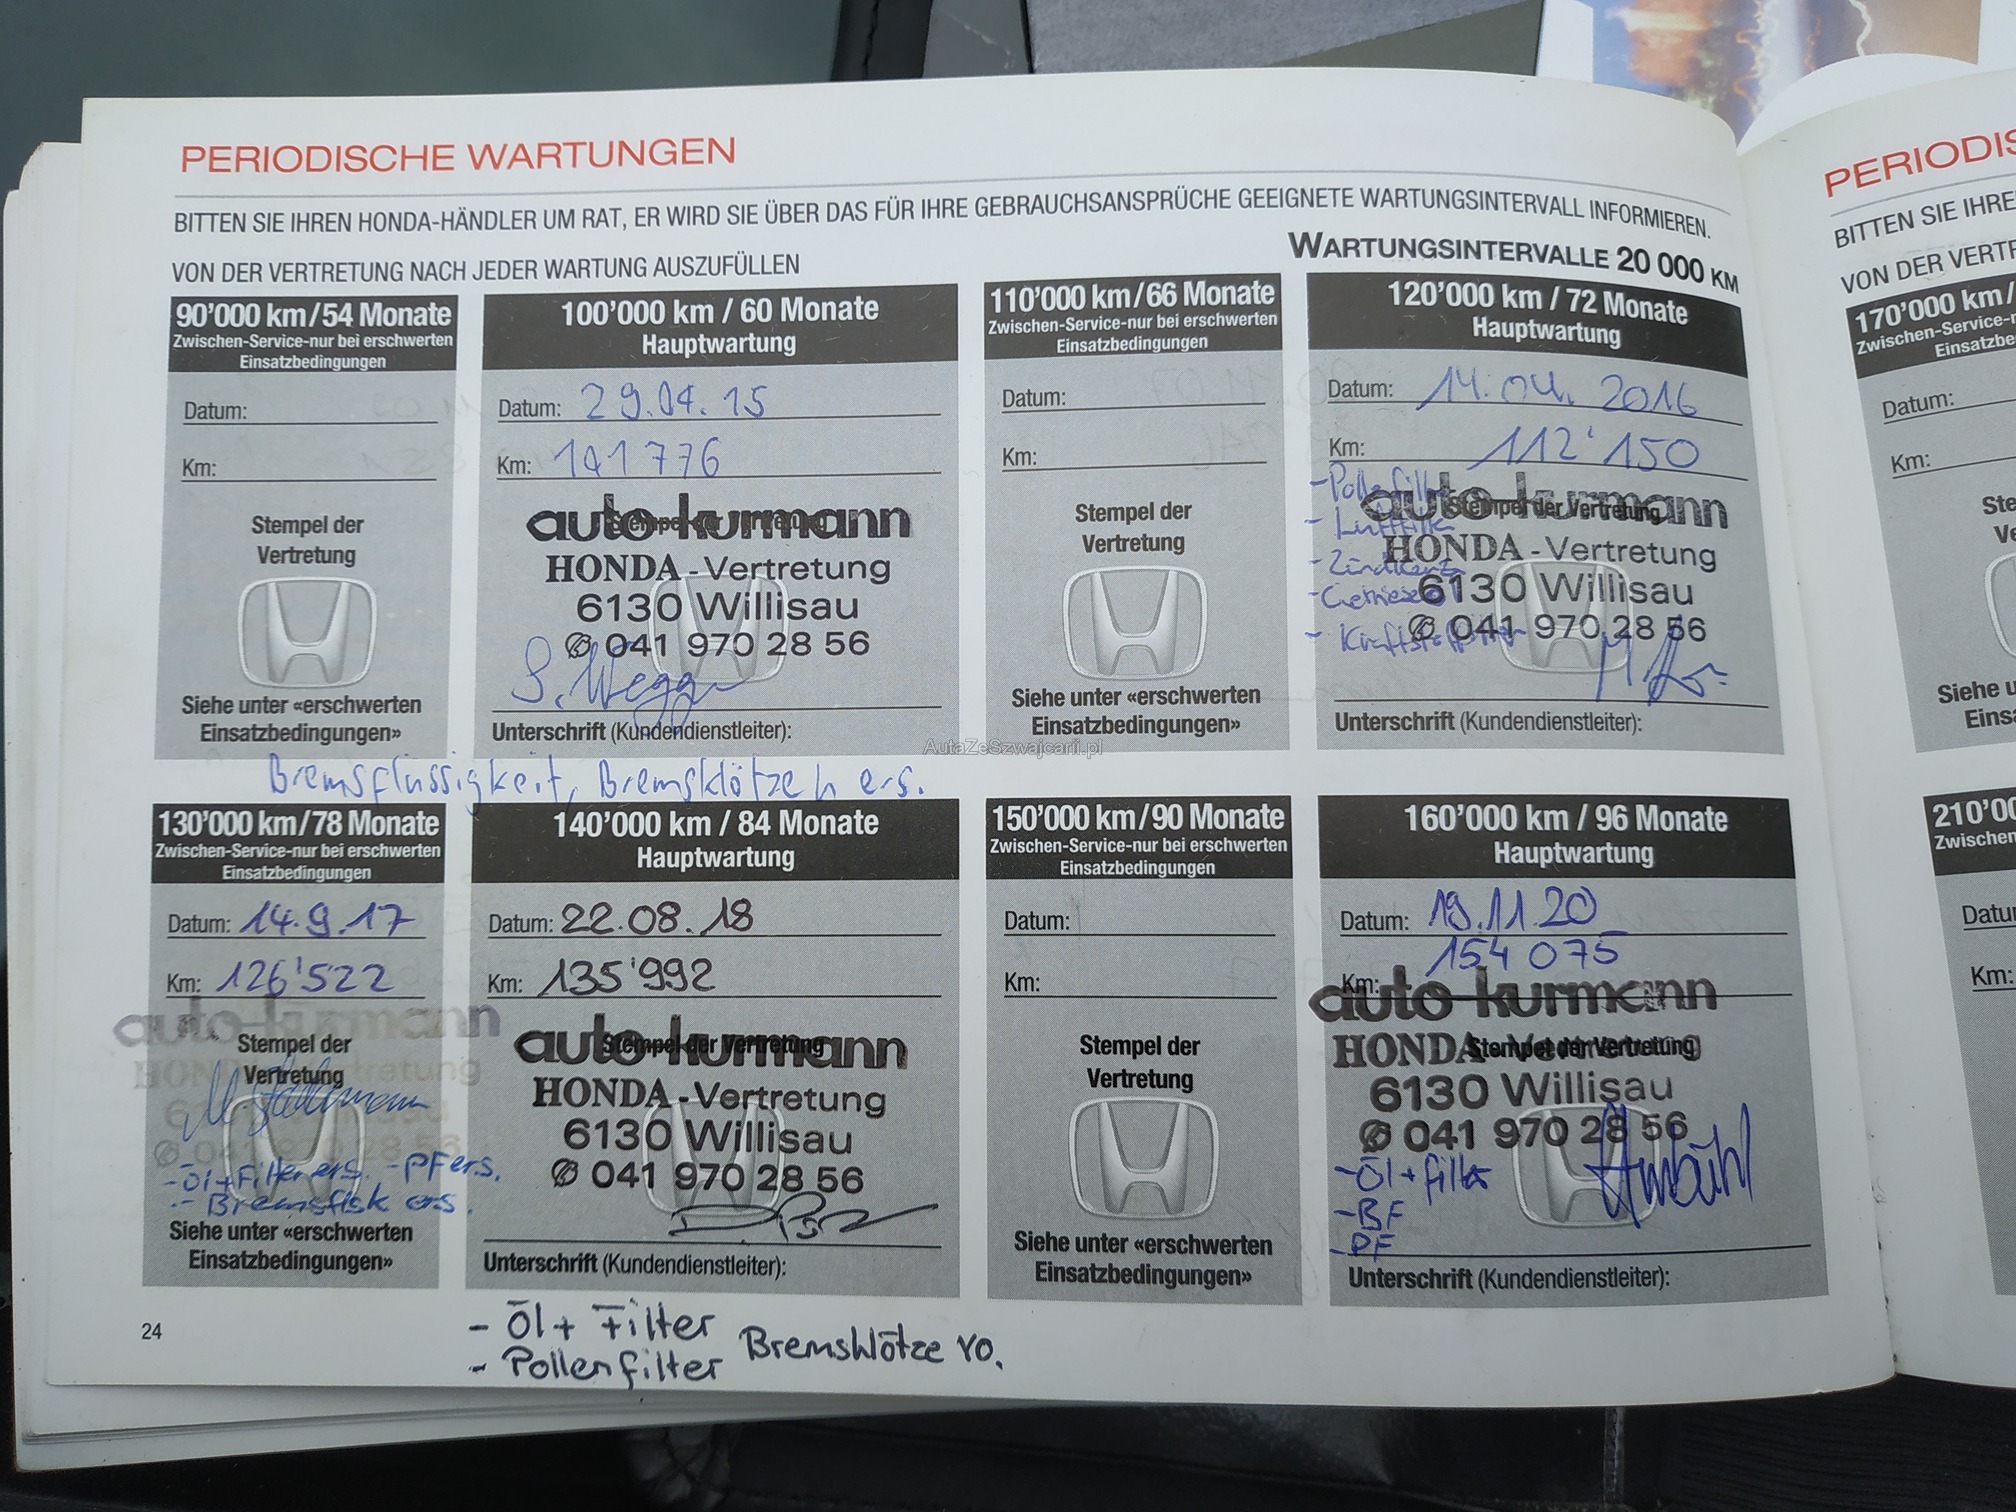 PERIODISCHE WARTUNGEN
BITTEN SIE IHREN HONDA-HÄNDLER UM RAT, ER WIRD SIE ÜBER DAS FÜR IHRE GEBRAUCHSANSPRÜCHE GEEIGNETE WARTUNGSINTERVALL INFORMIEREN.
VON DER VERTRETUNG NACH JEDER WARTUNG AUSZUFÜLLEN
WARTUNGSINTERVALLE 20 000 KM
90'000 km/54 Monate
Zwischen-Service-nur bei erschwerten
Einsatzbedingungen
Datum:
Km:
Stempel der
Vertretung
Siehe unter «erschwerten
Einsatzbedingungen»
100'000 km / 60 Monate
Hauptwartung
Datum: 29.04.15
Km: 101 776
Stempel der Vertretung
auto-kurmann
HONDA-Vertretung
6130 Willisau
✆ 041 970 28 56
Unterschrift (Kundendienstleiter):
Bremsflüssigkeit, Bremsklötze h ers.
110'000 km/66 Monate
Zwischen-Service-nur bei erschwerten
Einsatzbedingungen
Datum:
Km:
Stempel der
Vertretung
Siehe unter «erschwerten
Einsatzbedingungen»
120'000 km / 72 Monate
Hauptwartung
Datum: 14.04.2016
Km: 112'150
- Pollenfilter
- Luftfilter
Stempel der Vertretung
auto-kurmann
HONDA-Vertretung
6130 Willisau
✆ 041 970 28 56
Unterschrift (Kundendienstleiter):
AutaZeSzwajcarii.pl
130'000 km/78 Monate
Zwischen-Service-nur bei erschwerten
Einsatzbedingungen
Datum: 14.9.17
Km: 126'522
auto-kurmann
Stempel der
Vertretung
HONDA-Vertretung
6130 Willisau
✆ 041 970 28 56
- Öl+Filter ers. - PF ers.
- Bremsflsk ers.
Siehe unter «erschwerten
Einsatzbedingungen»
140'000 km / 84 Monate
Hauptwartung
Datum: 22.08.18
Km: 135'992
Stempel der Vertretung
auto-kurmann
HONDA-Vertretung
6130 Willisau
✆ 041 970 28 56
Unterschrift (Kundendienstleiter):
- Öl + Filter
- Pollenfilter
Bremsklötze vo.
150'000 km/90 Monate
Zwischen-Service-nur bei erschwerten
Einsatzbedingungen
Datum:
Km:
Stempel der
Vertretung
Siehe unter «erschwerten
Einsatzbedingungen»
160'000 km / 96 Monate
Hauptwartung
Datum: 19.11.20
Km: 154 075
auto-kurmann
Stempel der Vertretung
HONDA-Vertretung
6130 Willisau
✆ 041 970 28 56
- Öl + filter
- BF
- PF
Ambühl
Unterschrift (Kundendienstleiter):
24
PERIODIS
BITTEN SIE IHRE
VON DER VERTR
170'000 km/
Zwischen-Service-n
Einsatzbe
Datum:
Km:
Ste
Ve
Siehe u
Eins
210'00
Zwischen
Datu
Km: